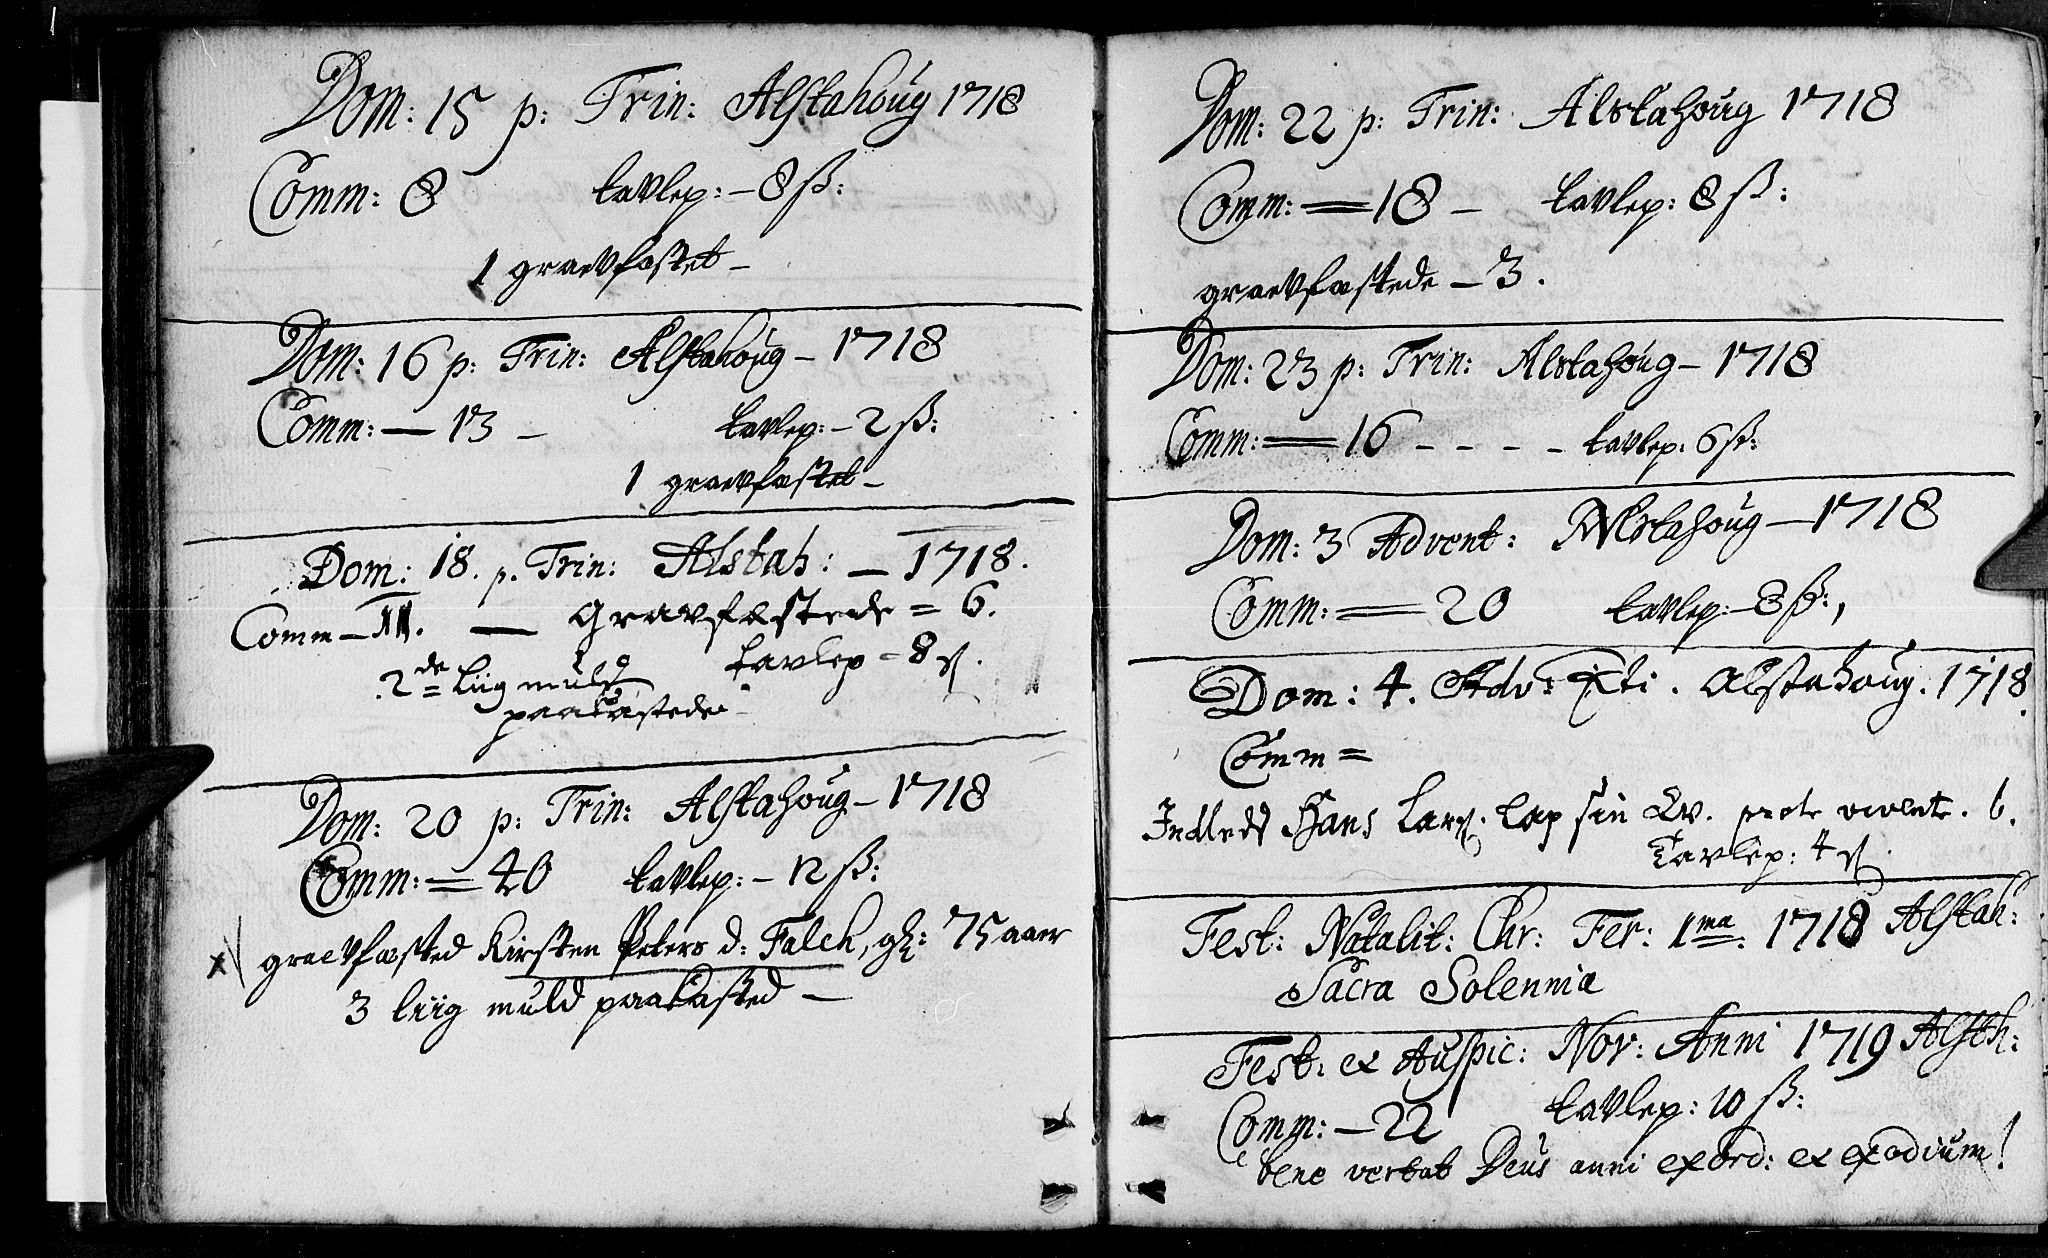 Dom: 15 p: Trin: Alstahoug 1718
Comm: 8 tavlep: – 8 ß:
1 graevfæstet –
Dom: 16 p: Trin: Alstahoug – 1718
Comm: — 13 – tavlep: – 2 ß:
1 graevfæstet –
Dom: 18. p. Trin: Alstah: — 1718.
Comm – — Gravfæstede = 6.
2de liig muld tavlep = 8 ß.
paakastede
Dom: 20 p: Trin: Alstahoug – 1718
Comm: = 40 tavlep: – 12 ß:
graevfæsted Kirsten Peters d: Falch, gl: 75 aaer
3 liig muld paakasted –
Dom: 22 p: Trin: Alstahoug 1718
Comm: = 18 – tavlep: 8 ß:
graevfæstede – 3.
Dom: 23 p: Trin: Alstahoug – 1718
Comm: = 16 - - - - tavlep: 6 ß:
Dom: 3 Advent: Alstahoug – 1718
Comm: = 20 tavlep: – 8 ß:,
Dom: 4. Adv: Xti. Alstahoug. 1718.
Comm =
Indledt Hans Lars. Lap sin Qv. 6.
Tavlep: 4 ß.
Fest: Natalit: Chr: Fer: 1ma. 1718 Alstah:
Sacra Solennia
Fest: ex Auspic: Nov: Anni 1719 Alsth:
Comm: – 22 tavlep: 10 ß:
bene vertat Deus anni exord: et exodium!